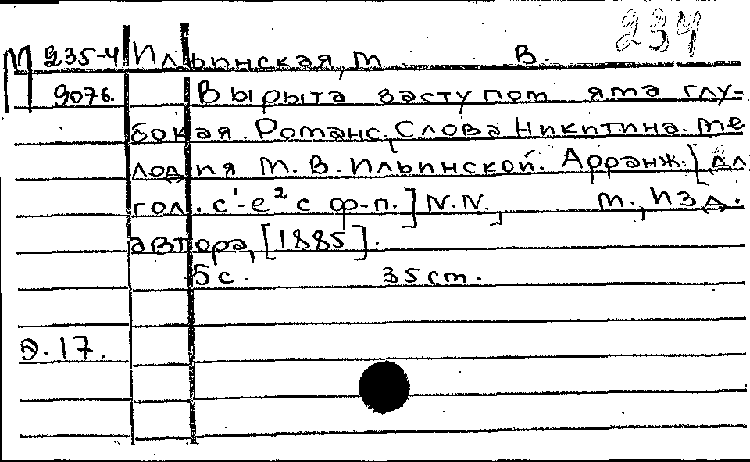 234
М 235-4 Ильинская, М. В.
9076. Вырыта заступом яма глу-
бокая. Романс. Слова Никитина. Ме
лодия М. В. Ильинской. Арранж. [дл
гол. c¹-e² с ф-п.] N.N., М., Изд.
автора, [1885].
5 с. 35 см.
Э. 17.